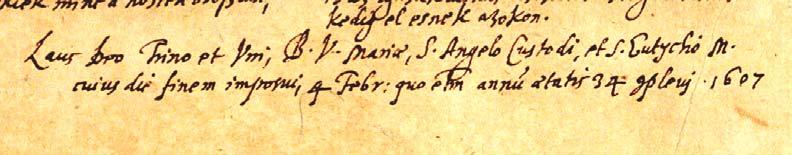 nostra
kedig el esnek azokon.
Laus Deo Trino et Vni, B. V. Mariæ, S. Angelo Custodi, et S. Eutychio M.
cuius die finem imposui, 4 Febr: quo etm annū ætatis 34 9plevi . 1607